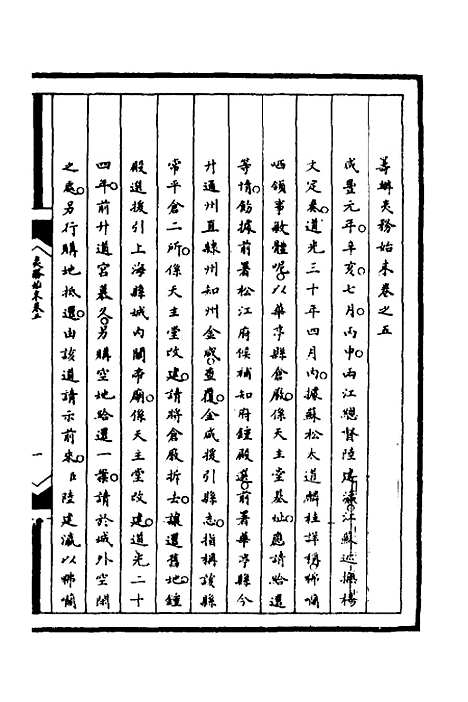 籌辦夷務始末卷之五
咸豐元年辛亥七月丙申兩江總督陸建瀛江蘇巡撫楊
文定奏道光三十年四月內據蘇松太道麟桂詳稱咈囒
哂領事敏體呢以華亭縣倉廒係天主堂基址應請給還
等情飭據前署松江府候補知府鍾殿選前署華亭縣今
升通州直隸州知州金咸查覆金咸援引縣志指稱該縣
常平倉二所係天主堂改建請將倉廒拆去讓還舊地鍾
殿選援引上海縣城內關帝廟係天主堂改建道光二十
四年前升道宮慕久另購空地給還一案請於城外空閒
之處另行購地抵還由該道請示前來臣陸建瀛以咈囒
夷務始末卷五
一